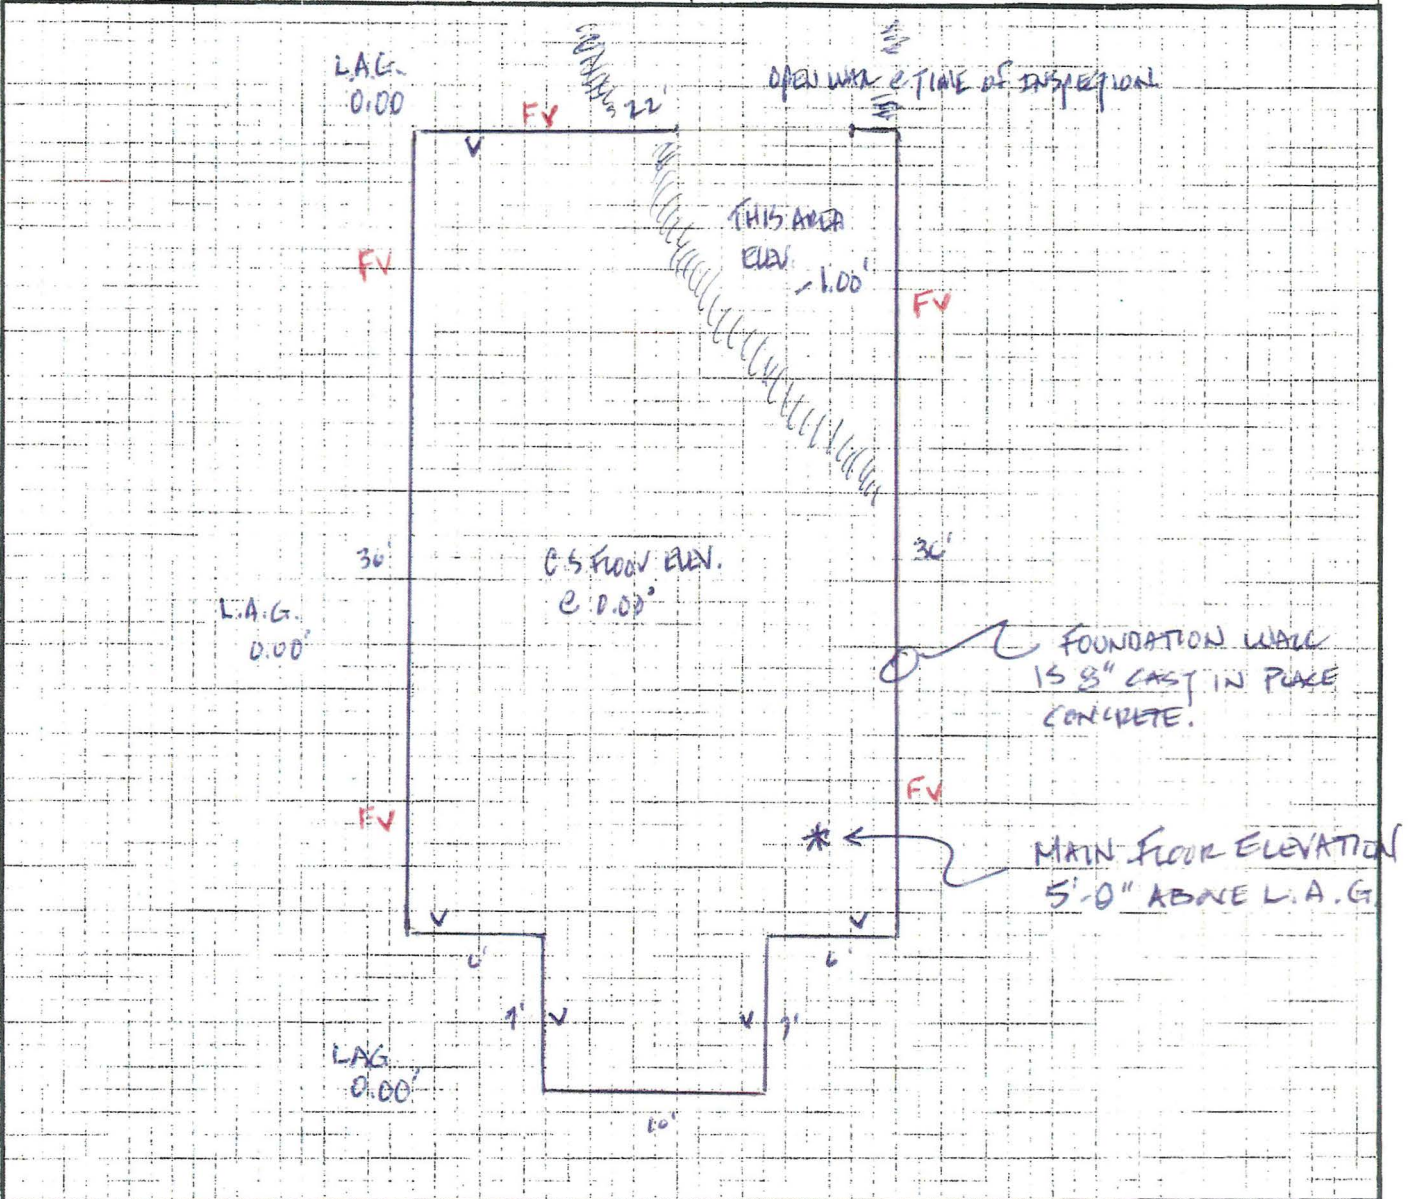 L.A.G.
0.00
OPEN WALL @ TIME OF INSPECTION
FV
22'
V
THIS AREA
ELEV.
-1.00'
FV
FV
36'
C.S FLOOR ELEV.
@ 0.00'
36'
L.A.G.
0.00'
FOUNDATION WALL
IS 8" CAST IN PLACE
CONCRETE.
FV
FV
* MAIN FLOOR ELEVATION
5'-0" ABOVE L.A.G.
V
V
6'
6'
7'
V
V
7'
LAG
0.00'
10'